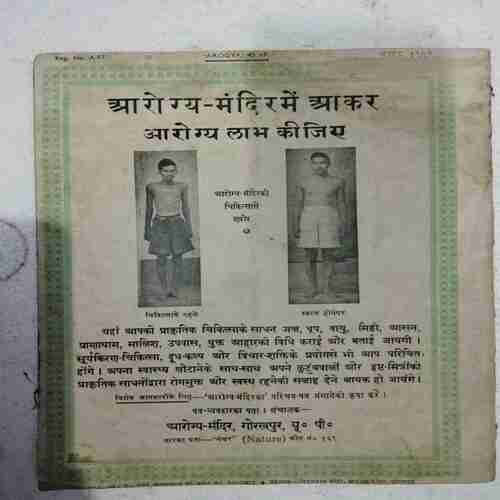 Reg. No. A-27
आरोग्य-मंदिरमें आकर
आरोग्य लाभ कीजिए
आरोग्य-मंदिरकी
चिकित्साके
चिकित्साके पहले
स्वस्थ होनेपर
यहाँ आपको प्राकृतिक चिकित्साके साधन जल, धूप, वायु, मिट्टी, आसन,
प्राणायाम, मालिश, उपवास, युक्त आहारकी विधि कराई और बताई जायगी ।
सूर्यकिरण-चिकित्सा, दूध-कल्प और विचार-शक्तिके प्रयोगसे भी आप परिचित
होंगे । अपना स्वास्थ्य लौटानेके साथ-साथ अपने कुटुंबवालों और इष्ट-मित्रोंको
प्राकृतिक साधनोंद्वारा रोगमुक्त और स्वस्थ रहनेकी सलाह देने लायक हो जायंगे ।
विशेष जानकारीके लिए—'आरोग्य-मंदिरका' परिचय-पत्र मंगानेकी कृपा करें ।
पत्र-व्यवहारका पता । संचालक—
आरोग्य-मंदिर, गोरखपुर, यू० पी०
तारका पता—'नेचर' (Nature) फोन नं०